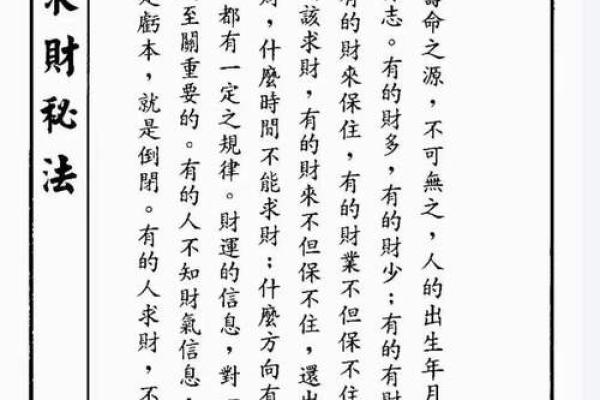 壽命之源，不可無之，人的出生年月
志。有的財多，有的財少；有的有財
有的財來保住，有的財業不但保不住
該求財，有的財來不但保不住，還出
財，什麼時間不能求財；什麼方向有
都有一定之規律。財運的信息，對
至關重要的。有的人不知財氣信息，
是虧本，就是倒閉。有的人求財，不
求財秘法